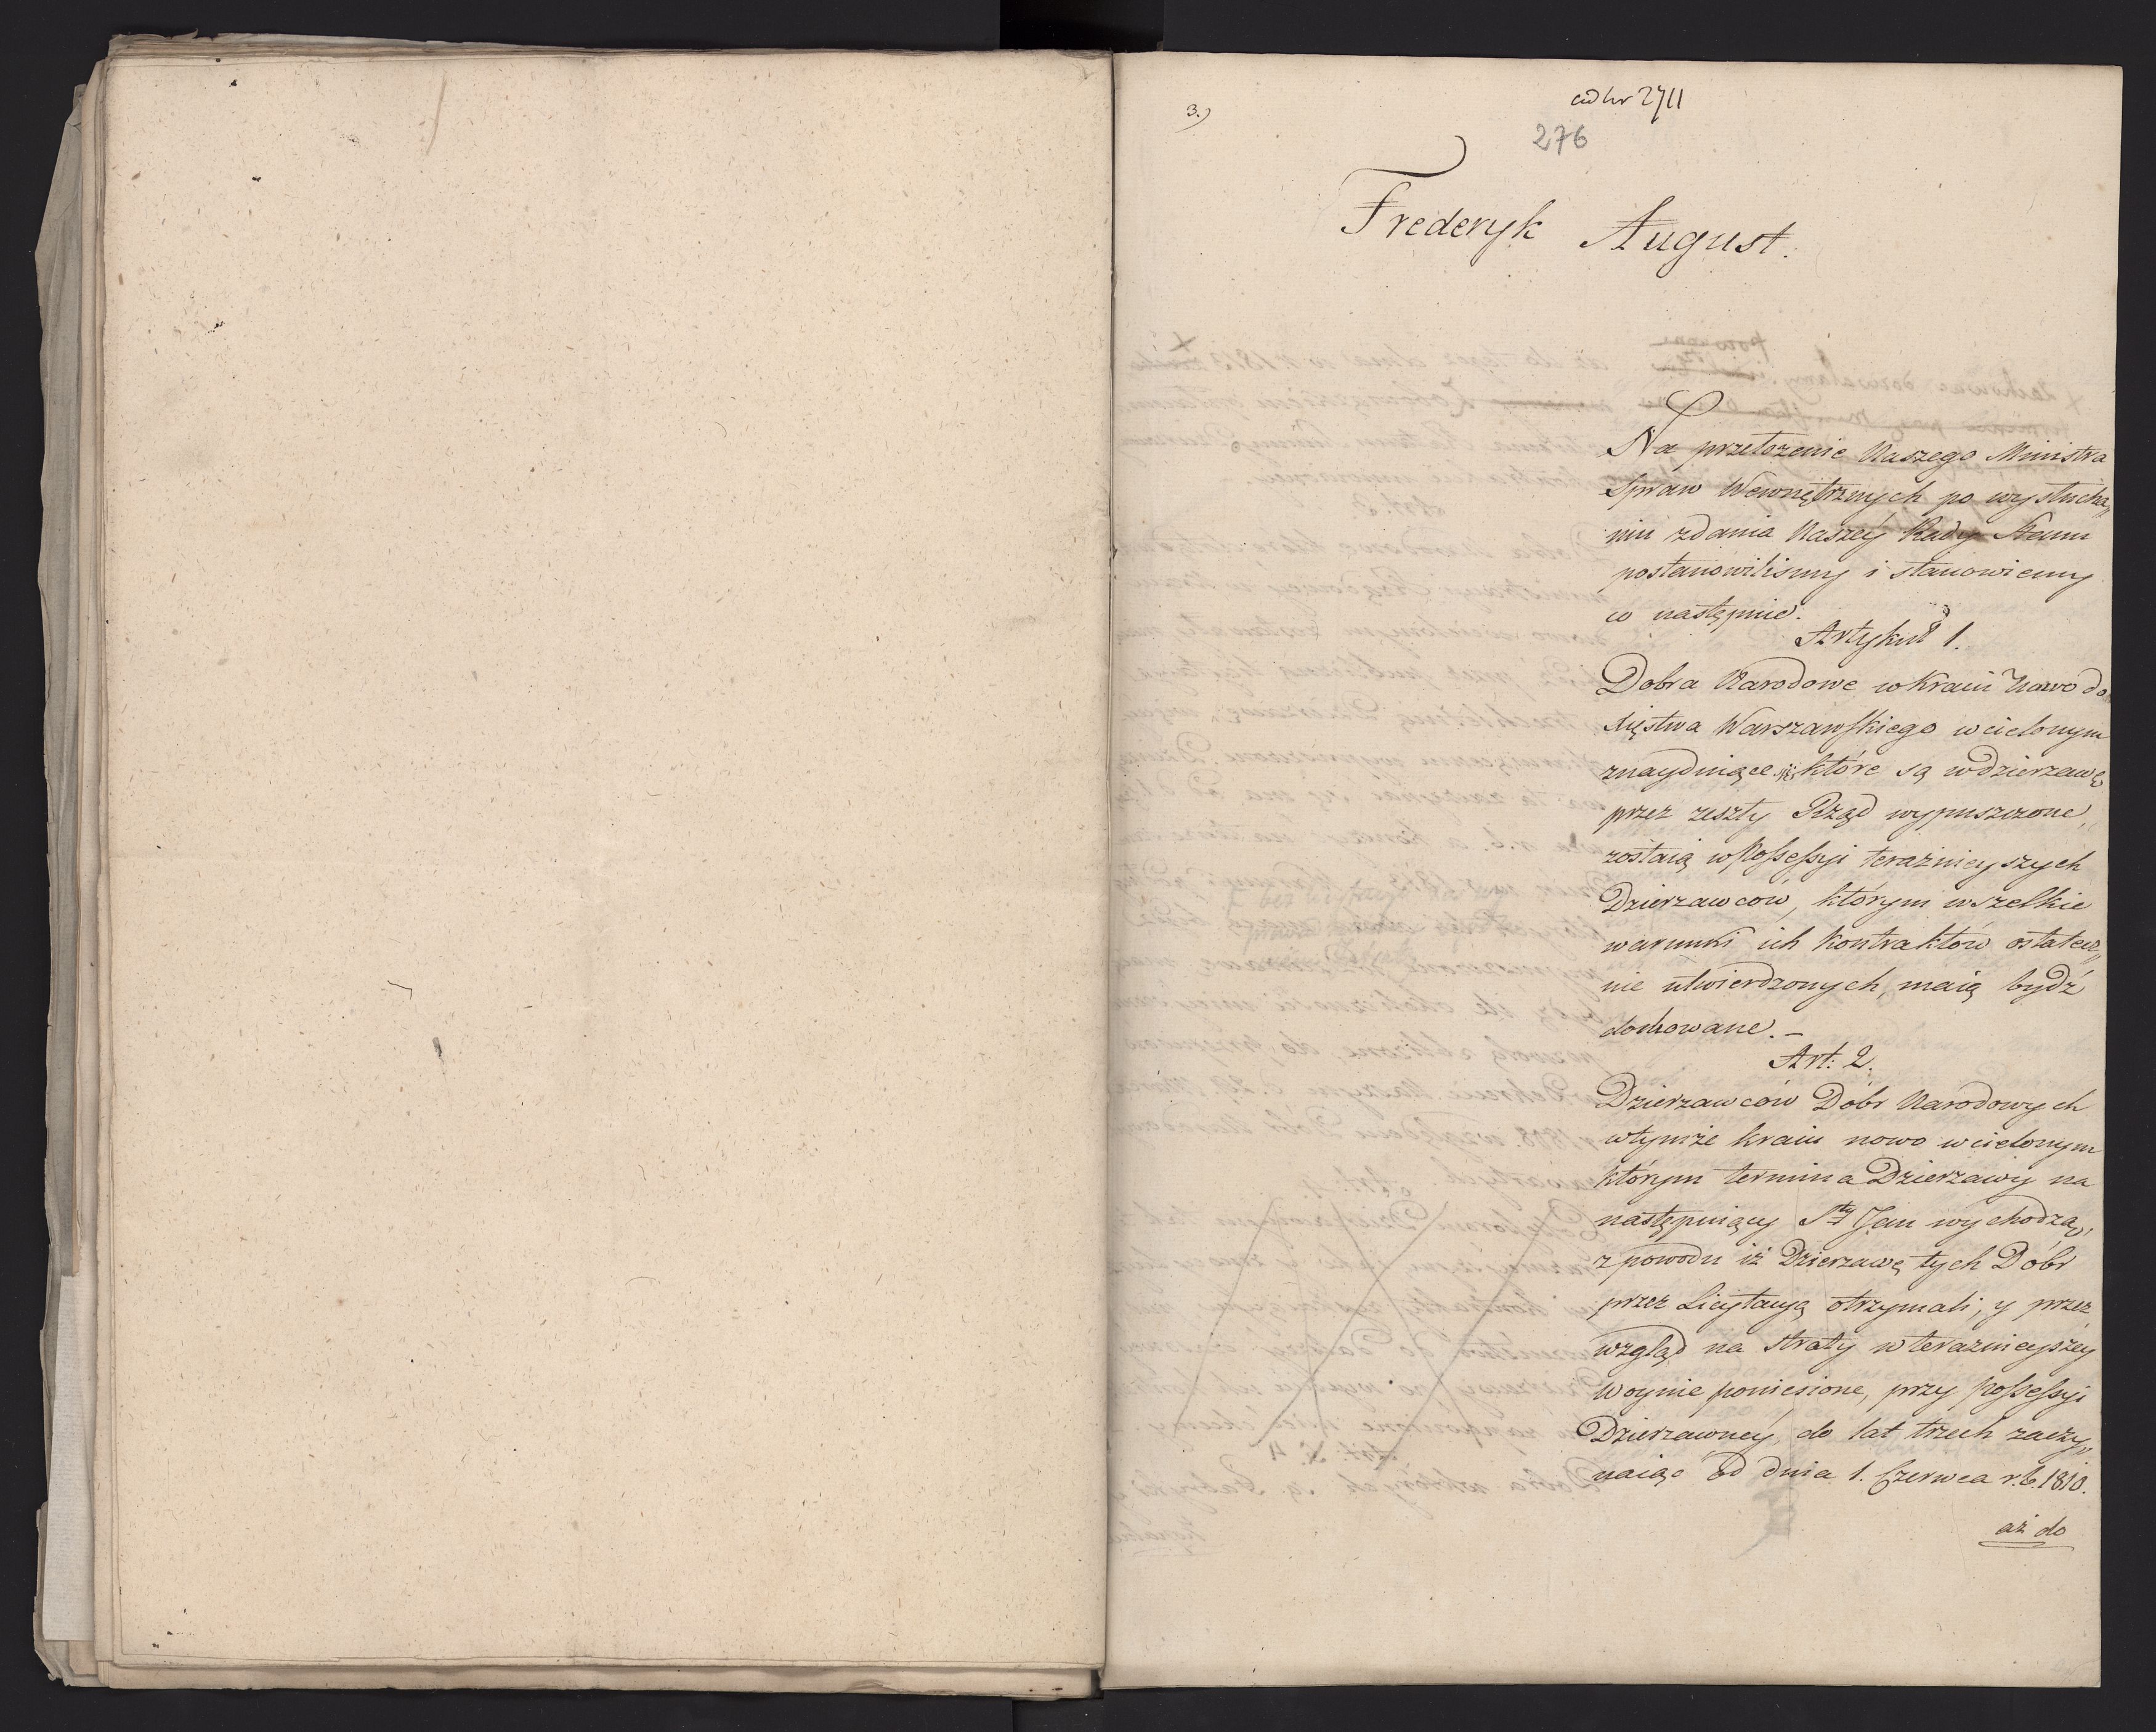 3.)
ad Nr 2711
276
Frederyk August.
Na przełożenie Naszego Ministra
Spraw Wewnętrznych po wysłucha„
niu zdania Naszéy Rady Stanu
postanowilismy i stanowiemy
co następnie.
Artykuł 1.
Dobra Narodowe w Kraiu Nowo do
Xięstwa Warszawskiego wcielonym
znayduiące się które są w dzierzawę
przez zeszły Rząd wypuszczone,
zostaią w Possessyi teraźnieyszych
Dzierzawców, którym wszelkie
warunki ich Kontraktów ostatecz„
nie utwierdzonych, maią bydź
dochowane. –
Art: 2.
Dzierzawców Dóbr Narodowych
w tymże kraiu nowo wcielonym
którym termina Dzierzawy na
następuiący Sty Jan wychodzą,
z powodu iż Dzierzawę tych Dóbr
przez Licytacyą otrzymali, y przez
wzgląd na straty w teraznieyszey
woynie poniesione, przy possessyi
Dzierzawney, do lat trzech zaczy„
naiąc od dnia 1. Czerwca r. b. 1810.
aż do